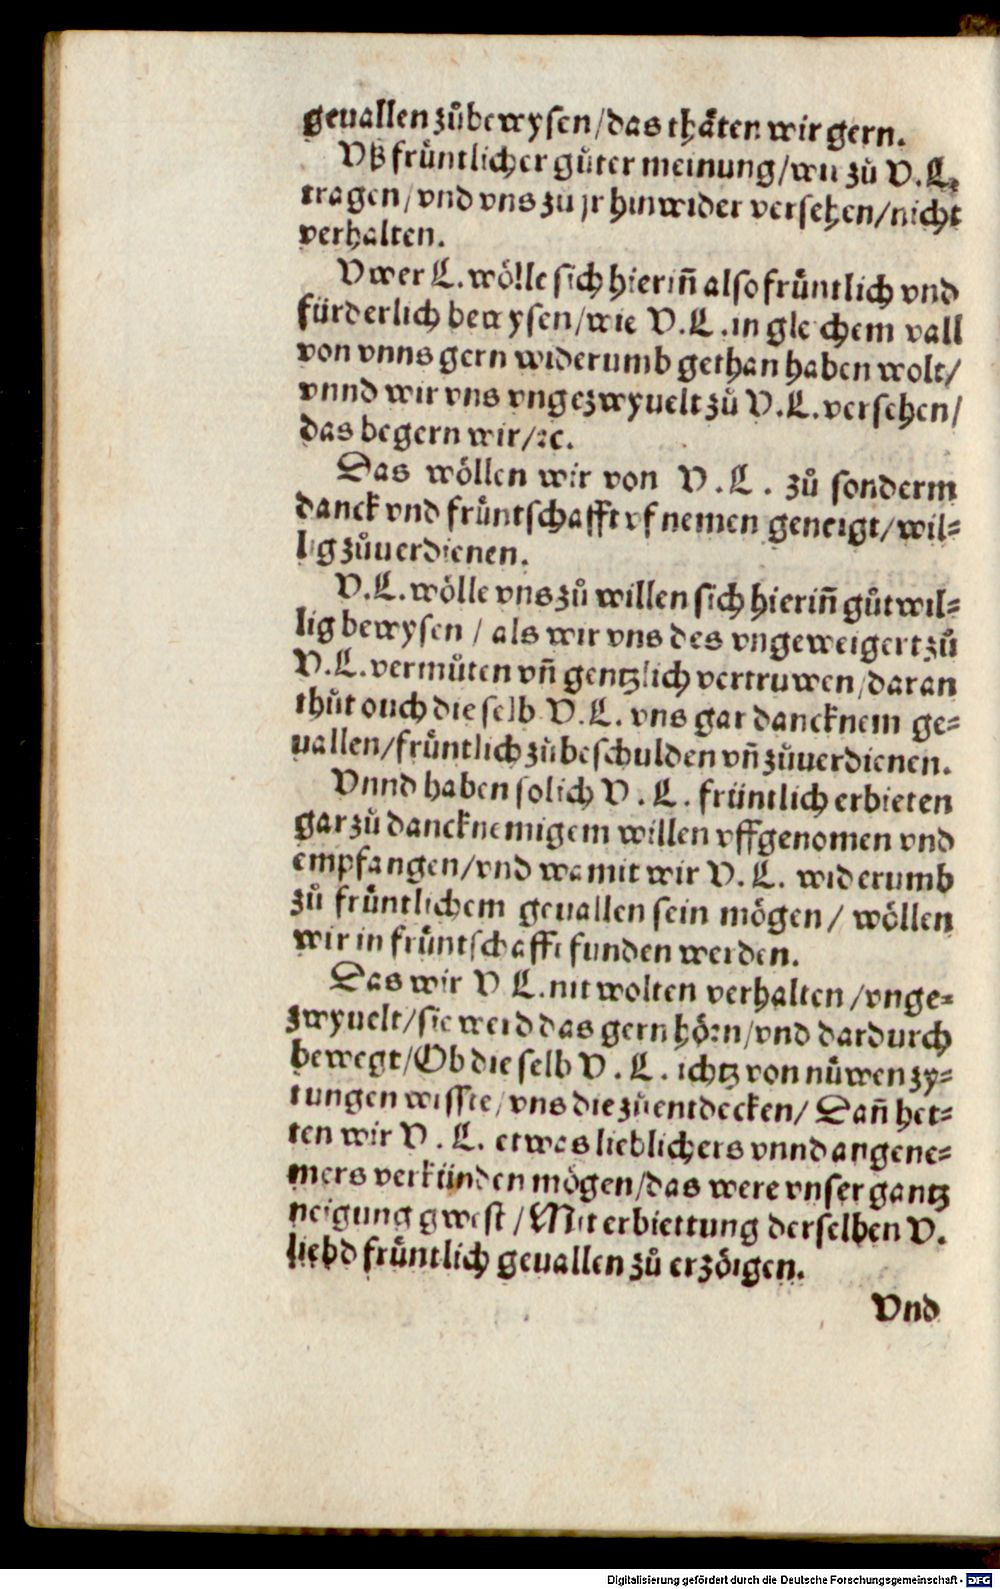 geuallen zůbewysen/das thäten wir gern.
Vß früntlicher gůter meinung/wir zů V.L.
tragen/vnd vns zu jr hinwider versehen/nicht
verhalten.
Vwer L.wölle sich hieriñ also früntlich vnd
fürderlich bewysen/wie V.L.in gleichem vall
von vnns gern widerumb gethan haben wolt/
vnnd wir vns vngezwyuelt zů V.L.versehen/
das begern wir/ꝛc.
Das wöllen wir von V.L. zů sonderm
danck vnd früntschafft vf nemen geneigt/wil⸗
lig zůuerdienen.
V.L.wölle vns zů willen sich hieriñ gůtwil⸗
lig bewysen / als wir vns des vngeweigert zů
V.L.vermůten vñ gentzlich vertruwen/daran
thůt ouch die selb V.L. vns gar dancknem ge⸗
uallen/früntlich zůbeschulden vñ zůuerdienen.
Vnnd haben solich V.L. früntlich erbieten
gar zů dancknemigem willen vffgenomen vnd
empfangen/vnd wamit wir V.L. widerumb
zů früntlichem geuallen sein mögen/ wöllen
wir in früntschafft funden werden.
Das wir V L.nit wolten verhalten/vnge⸗
zwyuelt/sie werd das gern hörn/vnd dardurch
bewegt/Ob die selb V.L. ichtz von nüwen zy⸗
tungen wisste/vns die zůentdecken/ Dañ het⸗
ten wir V.L. etwas lieblichers vnnd angene⸗
mers verkünden mögen/das were vnser gantz
neigung gwest/Mit erbiettung derselben V.
liebd früntlich geuallen zů erzöigen.
Vnd
Digitalisierung gefördert durch die Deutsche Forschungsgemeinschaft - DFG